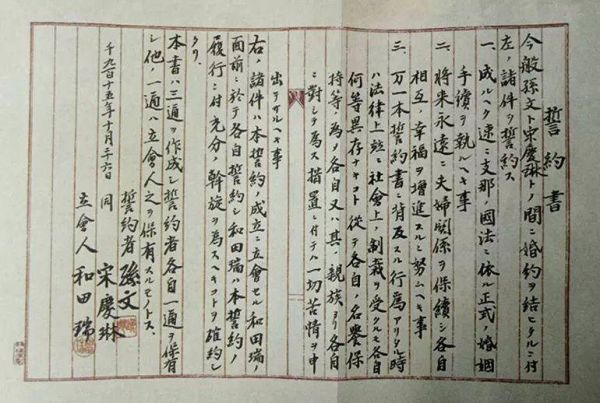 誓約書
今般孫文ト宋慶琳トノ間ニ婚約ヲ結ヒタルニ付
左ノ諸件ヲ誓約ス
一、成ルヘク速ニ支那ノ國法ニ依ル正式ノ婚姻
手續ヲ執ルヘキ事
二、將来永遠ニ夫婦関係ヲ保續シ各自
相互ノ幸福ヲ増進スルニ努ムヘキ事
三、万一本誓約書ニ背反スル行為アリタル時
ハ法律上並ニ社會上ノ制裁ヲ受クルモ各自
何等異存ナキコト従テ各自ノ名譽保
持等ノ為メ各自又ハ其ノ親族ヨリ各自
ニ對シテ為ス措置ニ付テハ一切苦情ヲ申
出テサルヘキ事
右ノ諸件ハ本誓約ノ成立ニ立會セル和田瑞ノ
面前ニ於テ各自誓約シ和田瑞ハ本誓約ノ
履行ニ付充分ノ幹旋ヲ為スヘキコトヲ確約シ
タリ
本書ハ三通ヲ作成シ誓約者各自一通ヲ保有
シ他ノ一通ハ立會人之ヲ保有スルモノトス
千九百十五年十月二十六日
誓約者 孫文
同 宋慶琳
立會人 和田瑞